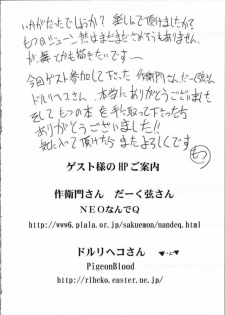 いかがだったでしょうか?楽しんで頂けましたか?
今回ゲスト参加して下さった作衛門さん、だーく弦さん
ドルリヘコさん、本当にありがとうございました
そしてもつの本を手に取って下さった方
ありがとうございました!!
気に入って頂けたらまたよろしくです
もつ
ゲスト様のHPご案内
作衛門さん だーく弦さん
NEOなんでQ
http://www6.plala.or.jp/sakuemon/nandeq.html
ドルリヘコさん
PigeonBlood
http://riheko.easter.ne.jp/